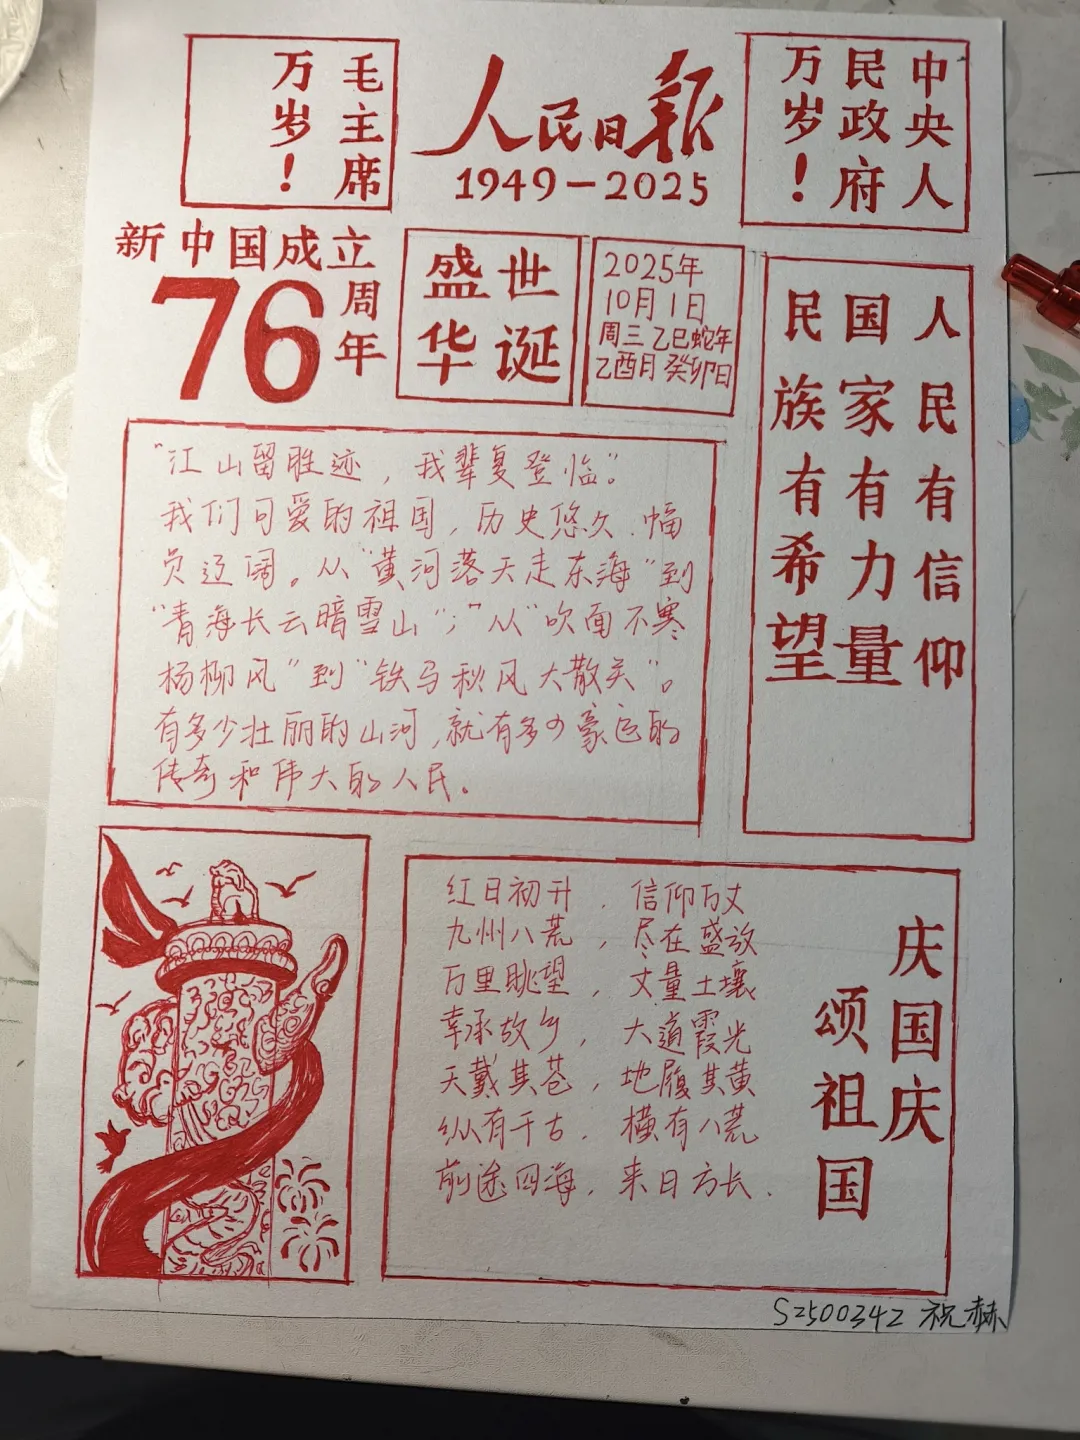 毛主席
万岁！
人民日报
1949－2025
中央人
民政府
万岁！
新中国成立
76
周年
盛世
华诞
2025年
10月1日
周三 乙巳蛇年
乙酉月 癸卯日
人民有信仰
国家有力量
民族有希望
“江山留胜迹，我辈复登临”。
我们可爱的祖国，历史悠久.幅
员辽阔。从“黄河落天走东海”到
“青海长云暗雪山”；”从“吹面不寒
杨柳风”到“铁马秋风大散关”。
有多少壮丽的山河，就有多少豪迈的
传奇和伟大的人民。
庆国庆
颂祖国
红日初升，信仰万丈
九州八荒，尽在盛放
万里眺望，丈量土壤
幸承故乡，大道霞光
天戴其苍，地履其黄
纵有千古，横有八荒
前途四海，来日方长.
S2500342 祝赫